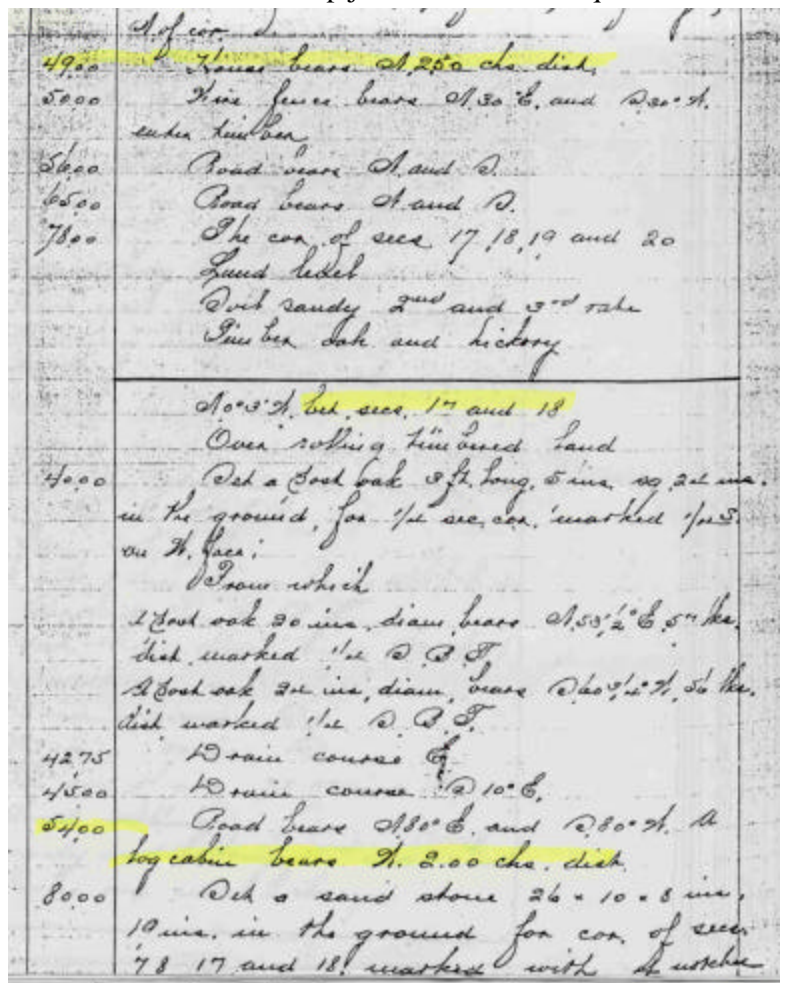 N. of cor.
49.00 House bears N. 2.50 chs. dist.
50.00 Wire fence bears N. 30° E. and S. 30° W.
enter timber
56.00 Road bears N. and S.
65.00 Road bears N. and S.
78.00 The cor. of secs 17, 18, 19 and 20
Land level
Soil sandy 2nd and 3rd rate
Timber oak and hickory
N. 0° 3' W. bet. secs. 17 and 18
Over rolling timbered land
40.00 Set a post oak 3 ft. long, 5 ins. sq. 24 ins.
in the ground, for 1/4 sec. cor. marked 1/4 S.
on W. face;
From which
A post oak 20 ins. diam. bears N. 53 1/2° E. 57 lks.
dist. marked 1/4 S. B. T.
A post oak 24 ins. diam. bears S. 60 3/4° W. 56 lks.
dist marked 1/4 S. B. T.
42.75 Drain course E
45.00 Drain course S 10° E.
54.00 Road bears N. 80° E. and S. 80° W. A
log cabin bears W. 2.00 chs. dist.
80.00 Set a sand stone 26 x 10 x 8 ins.
19 ins. in the ground for cor. of secs
7 8 17 and 18, marked with 4 notches